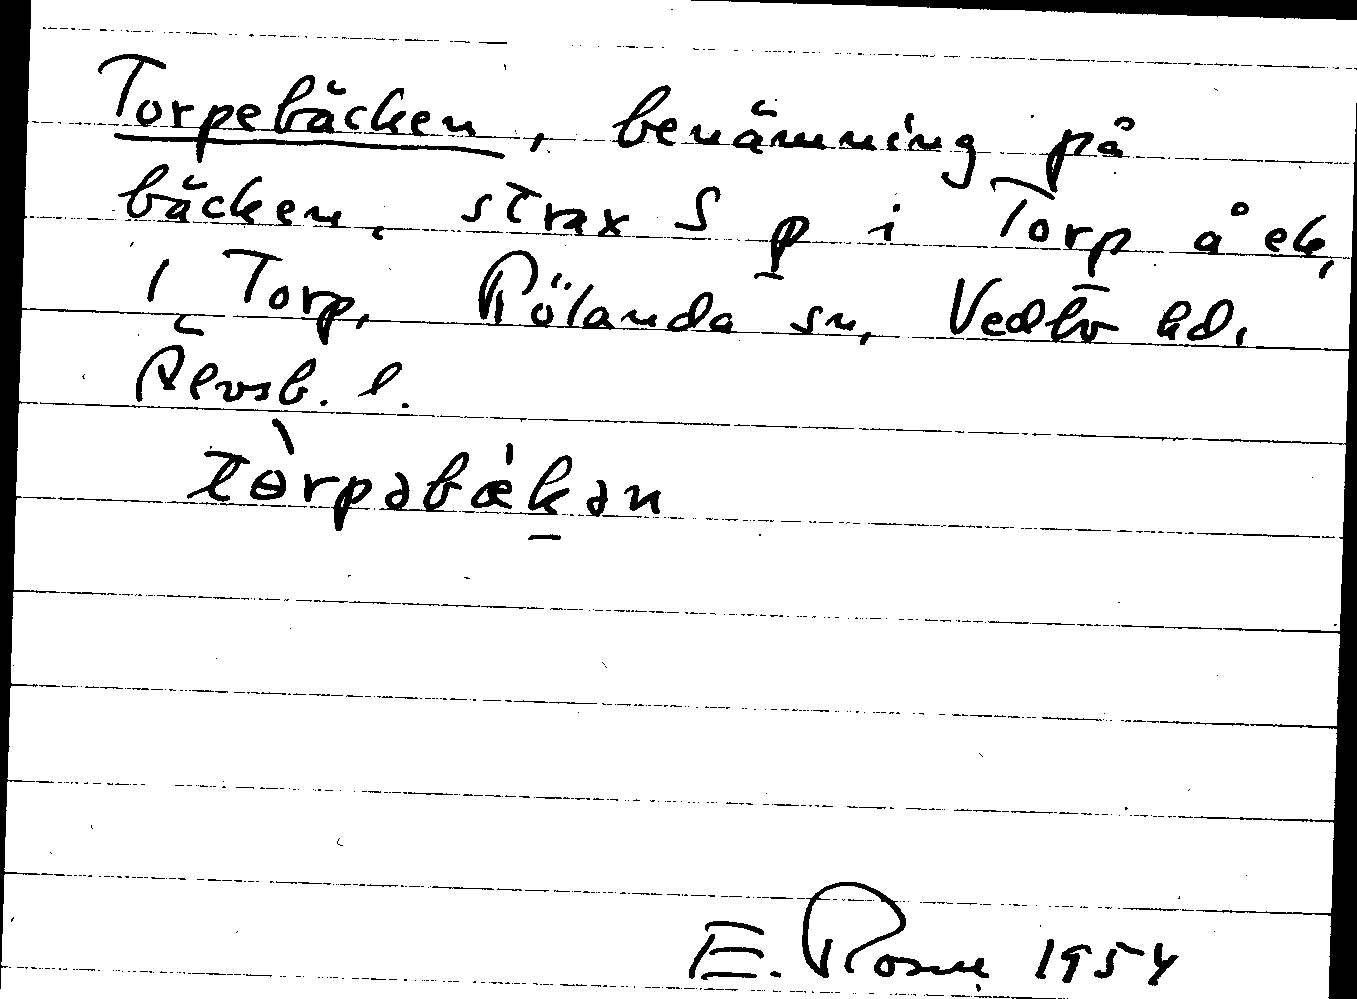 Torpebäcken, benämning på
bäcken, strax S p i Torp å ek,
1 Torp, Rölanda sn, Vedbo hd,
Älvsb. l.
tɵ̀rpəbæ̀kən
E. 1954